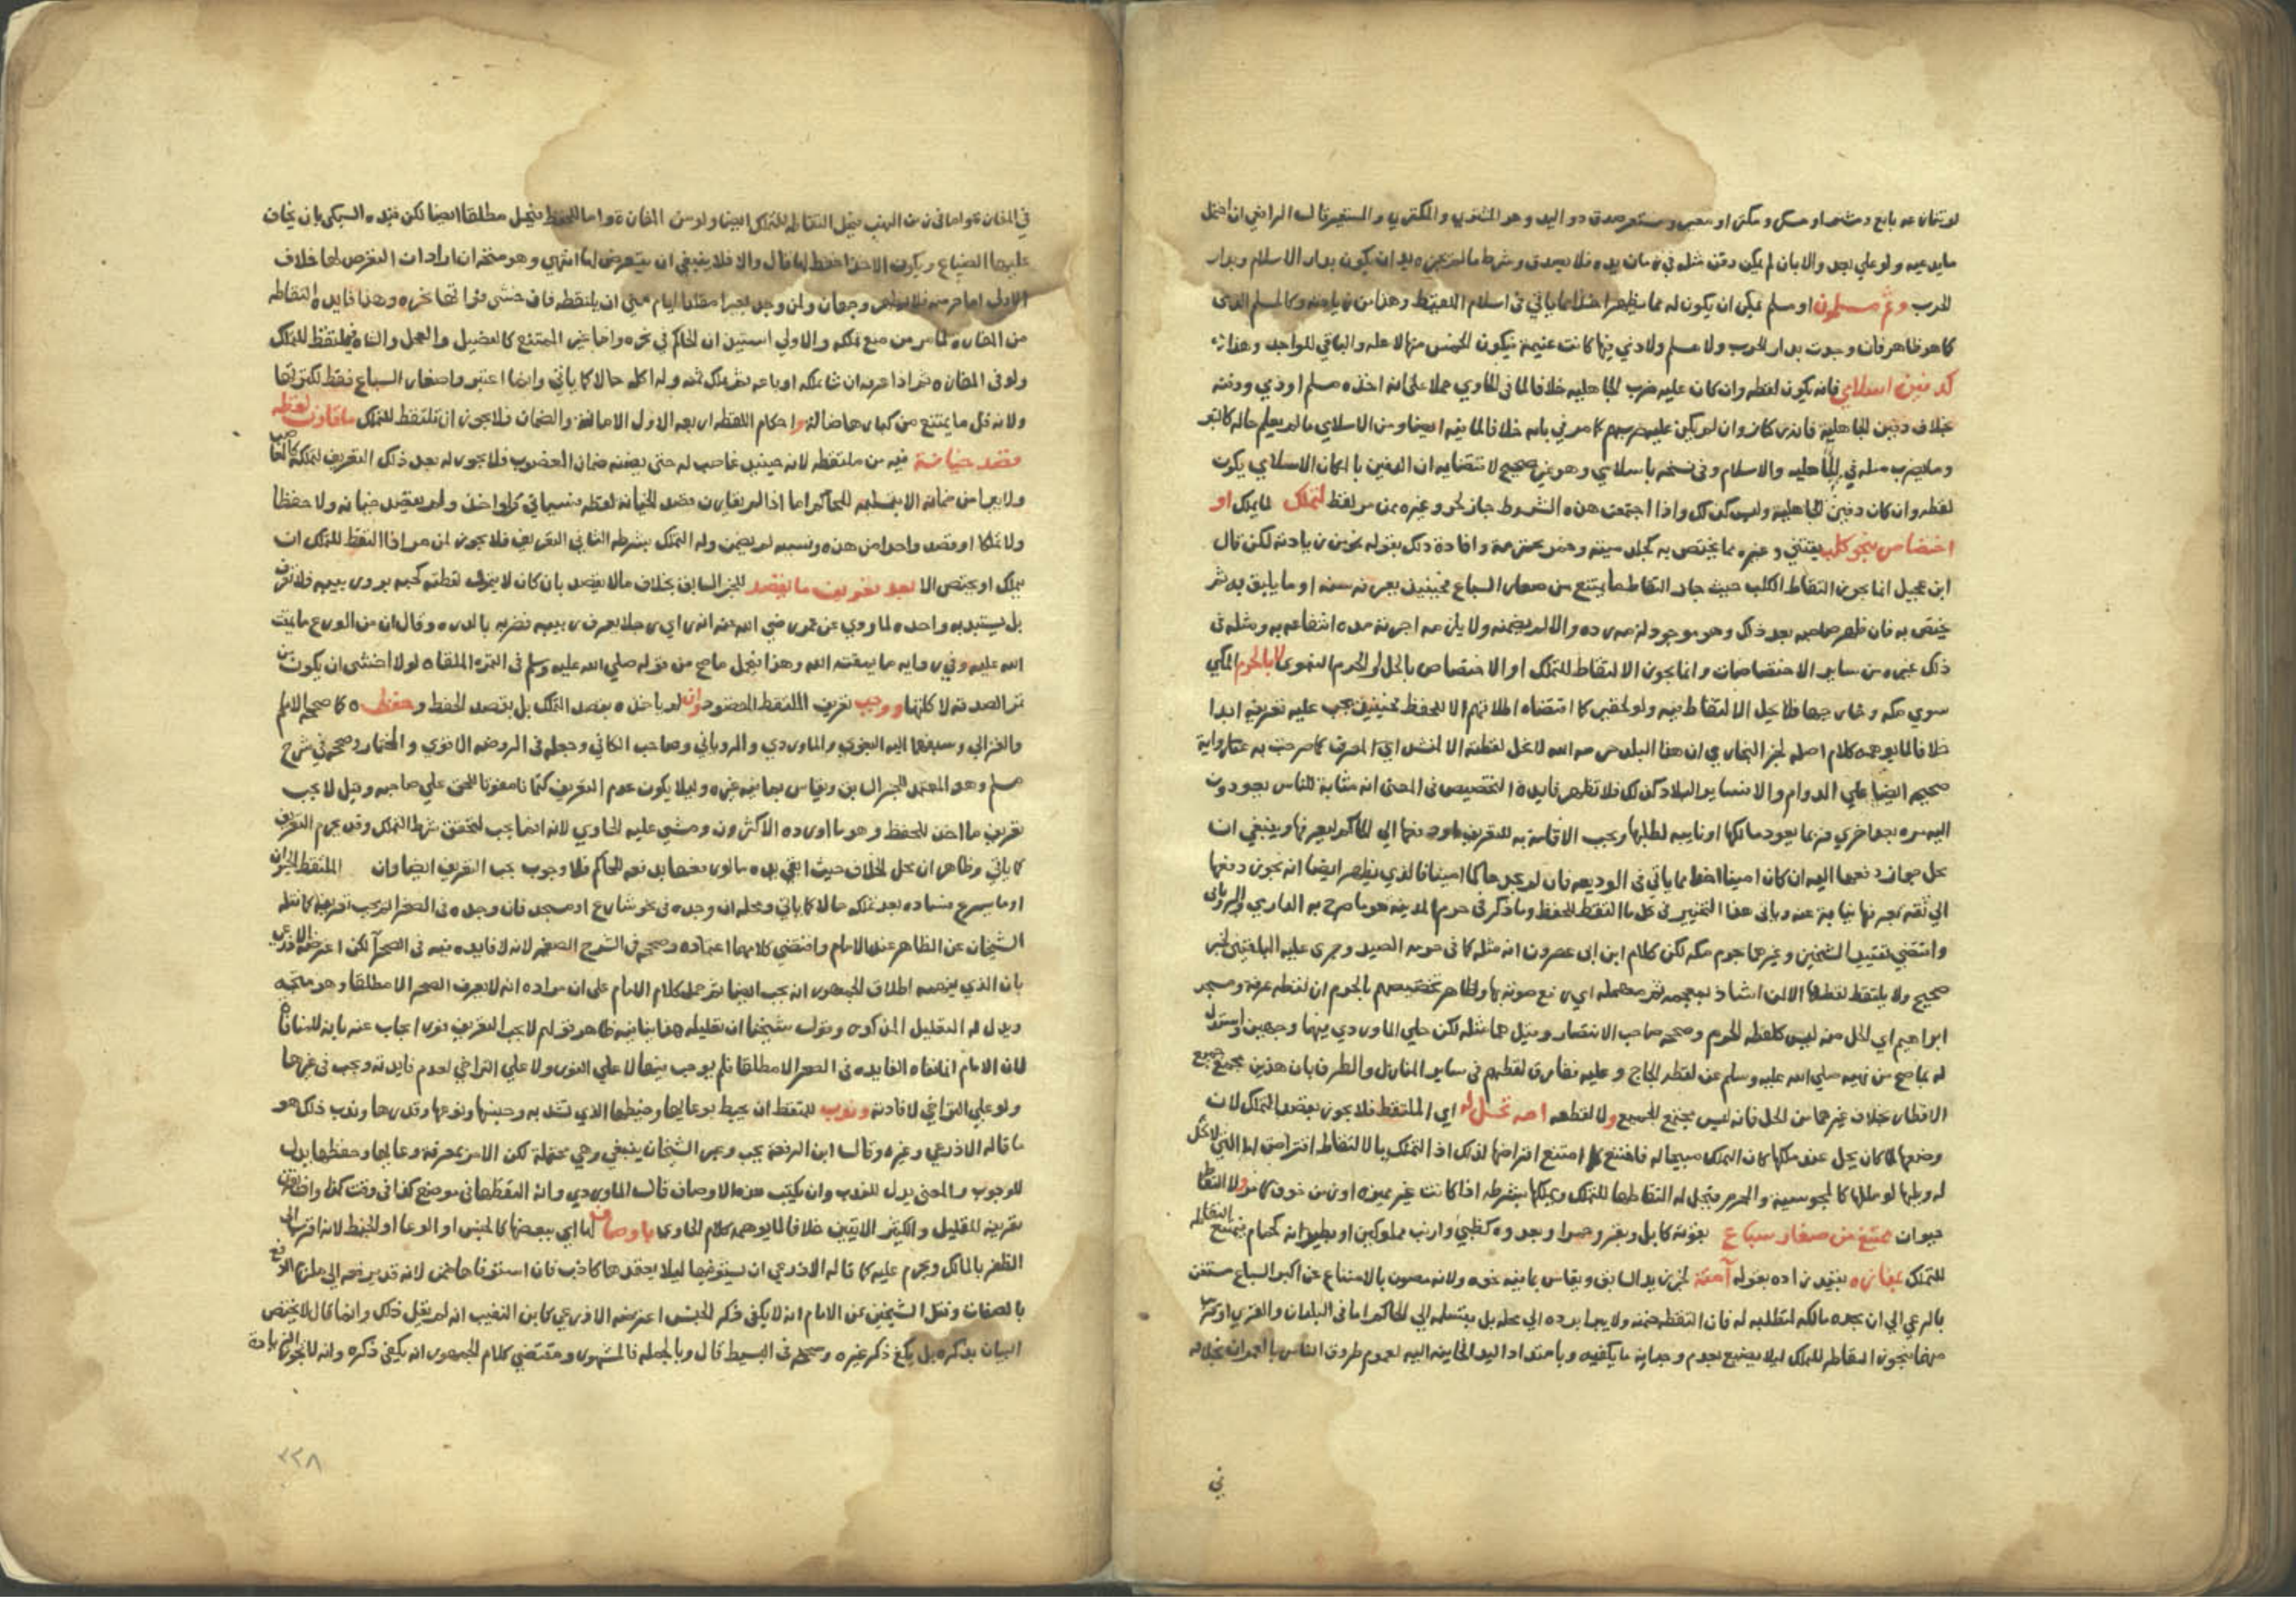 لو تنازعه بايع ومشتر او مكر ومكتر او معير ومستعير صدق ذو اليد وهو المشتري والمكتري والمستعير قال الرافعي ان احتمل
ما يدعيه ولو علي بعد والا بان لم يكن دفن مثله في زمان يده فلا يصدق وشرط ما لم يكن بدار الاسلام وبدار
الحرب وثم مسلمون او مسلم يمكن ان يكون له مما يظهر اخذا مما ياتي في اسلام اللقيط وهذا من زيادته وكالمسلم الذمي
كما هو ظاهر فان وجدت بدار الحرب ولا مسلم ولا ذمي فيها كانت غنيمة فيكون الخمس منها لاهله والباقي للواجد وهذا
كدفين اسلامي فانه يكون لقطه وان كان عليه ضرب الجاهليه خلافا لما في الحاوي عملا علي انه اخذه مسلم او ذمي ودفنه
بخلاف دفين الجاهلية فانه ركاز وان لم يكن عليه ضربهم كما مر في بابه خلافا لما فيه ايضا ومن الاسلامي ما لم يعلم حاله كالتبر
وما يضرب مثله في الجاهليه والاسلام وفي نسخه باسلامي وهو غير صحيح لاقتضايه ان الدفين بالمكان الاسلامي يكون
لقطه وان كان دفين الجاهلية وليس كذلك واذا اجتمعت هذه الشروط جاز لحر وغيره ممن مر لقط لتملك لما يملك او
اختصاص بنحو كلب يقتني وغيره مما يختص به كجلد ميتة وخمر محترمة وافادة ذلك بقوله بنحو من زيادته لكن قال
ابن عجيل انما يجوز التقاط الكلب حيث جاز التقاط ما يمتنع من صغار السباع فحينيذ يعرفه سنه او ما يليق به ثم
يختص به فان ظهر صاحبه بعد ذلك وهو موجود لزمه رده والا لم يضمنه ولا يلزمه اجرته مدة انتفاعه به ومثله في
ذلك غيره من ساير الاختصاصات وانما يجوز الالتقاط للتملك او الاختصاص بالحل لا بالحرم المكي
سوي مكه وما جاورها فلا يحل الالتقاط فيه ولو لحقير كما اقتضاه اطلاقهم الا للحفظ فحينيذ يجب عليه تعريفه ابدا
خلافا لما يوهمه كلام اصله لخبر البخاري ان هذا البلد حرمه الله لا تحل لقطته الا لمنشد اي لمعرف كما صرحت به رواية
صحيحه ايضا علي الدوام والا فساير البلاد كذلك فلا تظهر فايدة التخصيص في المعني انه مثابة للناس يعودون
اليه مره بعد اخري فربما يعود مالكها او نايبه لطلبها ويجب الاقامة به للتعريف او دفعها الي الحاكم ليعرفها وينبغي ان
محل جواز دفعها اليه ان كان امينا اخذا مما ياتي في الوديعه فان لم يجد حاكما امينا فالذي يظهر ايضا انه يجوز دفعها
الي ثقه يعرفها نيابة عنه وياتي هذا التخيير في كل ما التقط للحفظ وما ذكر في حرم المدينه هو ما صرح به الدارمي والروياني
واقتضي تقييد الشيخين وغيرهما بحرم مكه لكن كلام ابن ابي عصرون انه مثله كما في حرمه الصيد وجري عليه البلقيني لخبر
صحيح ولا يلتقط لقطها الا لمن اشاد بمعجمه ثم مهمله اي رفع صوته بها وظاهر تخصيصهم بالحرم ان لقطه عرفه ومسجد
ابراهيم اي الحل منه ليس كلقطه الحرم وصححه صاحب الانتصار وقيل هما مثله لكن حكي الماوردي فيها وجهين واستدل
له بما صح من نهيه صلي الله عليه وسلم عن لقطه الحاج وعليه تفارق لقطهم في ساير المنازل والطرق بان هذين مجمع جميع
الاقطار بخلاف غيرهما من الحل فانه ليس مجتمع الجميع ولا لقطه امه تحل له اي الملتقط فلا يجوز بقصد التملك لان
وضعها لما كان يحل عند ملكها كان التملك مبيحا له فامتنع كما امتنع اقتراضها لذلك اذ التملك بالالتقاط اقتراض اما التي لا تحل
له وطيها لو ملكها كالمجوسية والمحرم فيحل له التقاطها للتملك ويملكها بشرطه اذا كانت غير مميزه او زمن خوف كما مر ولا التقاط
حيوان ممتنع من صغار سباع بقوته كابل وبقر وحمر او بعدوه كظبي وارنب مملوكين او بطيرانه كحمام فيمتنع التقاطه
للتملك بمفازه بقيد زاده بقوله آمنة لخبر زيد السابق ويقاس بما فيه غيره ولانه مصون بالامتناع عن اكثر السباع مستغن
بالرعي الي ان يجده مالكه لتطلبه له فان التقطه ضمنه ولا يبرا برده الي محله بل بتسليمه الي الحاكم اما في البلدان والقري او
منها فيجوز التقاطه للتملك ليلا يضيع بعدم وجدانه ما يكفيه وبامتداد اليد الخاينه اليه لعموم طروق الناس بالعمران بخلافه
في
في المفازه واما في زمن النهب فيحل التقاطه للتملك ايضا ولو من المفازة واما للحفظ فيحل مطلقا ايضا لكن قيده السبكي بان يخاف
عليها الضياع ويكون الاخذ احفظ لها قال والا فلا ينبغي ان يتعرض لها انتهي وهو متجه ان اراد ان التعرض لها خلاف
الاولي اما حرمته فلا يظهر وجهها ولمن وجد بعيرا مقلدا ايام مني ان يلتقطه فان خشي فواتها نحره وهذا فايدة التقاطه
من المفازه لما مر من منع تملكه والاولي استيذان الحاكم في نحره واما غير الممتنع كالفصيل والعجل والشاه فيلتقط للتملك
ولو في المفازه ثم اذا عرفه ان شا تملكه او باعه ثم تملك ثمنه وله اكله حالا كما ياتي وانما اعتبروا صغار السباع فقط لكثرتها
ولانه قل ما يمتنع من كبارها ضالة واحكام اللقطه اربعه الاول الامانة والضمان فلا يجوز ان تلتقط للتملك ما قارن لقطه
قصد خيانة فيه من ملتقطه لانه حينيذ غاصب له حتي يضمنه ضمان المغصوب فلا يجوز له بعد ذلك التعريف لتملكه كالغاصب
ولا يبرا من ضمانه الا بتسليمه للحاكم اما اذا لم يقارن قصد الخيانة لقطه فسياتي ولو اخذ ولم يقصد خيانه ولا حفظا
ولا تملكا او قصد واحدا من هذه ونسيه لم يضمن وله التملك بشرطه الثاني التعريف فلا يجوز لمن مر اذا التقط للتملك ان
يملك او يختص الا بعد تعريف ما يقصد للخبر السابق بخلاف ما لا يقصد بان كان لا يعرف لقطته كحبه بر وزبيبه فلا تعرف
بل يستبد به واجده لما روي عن عمر رضي الله عنه انه راي رجلا يعرف زبيبه فضربه بالدره وقال ان من الورع ما يمقت
الله عليه وفي روايه ما يمقته الله وهذا محمل ما صح من قوله صلي الله عليه وسلم في التمره الملقاه لولا اخشي ان يكون من
تمر الصدقه لاكلتها ووجب تعريف الملتقط المقصود وان لم ياخذه بقصد التملك بل بقصد الحفظ وحفظه كما صححه الامام
والغزالي وسبقهما اليه البغوي والماوردي والروياني وصاحب الكافي وجعله في الروضه الاقوي والمختار وصححه في شرح
مسلم وهو المعتمد للخبر السابق وبقياس بما فيه غيره وليلا يكون عدم التعريف كتمانا مفوتا للحق علي صاحبه وقيل لا يجب
تعريف ما اخذ للحفظ وهو ما اورده الاكثرون ومشي عليه الحاوي لانه انما يجب لتحقق شرط التملك وقد يحرم التعريف
كما ياتي وظاهر ان محل الخلاف حيث ابقي بيده ما لو دفعها بدفعه للحاكم فلا وجوب يجب التعريف ايضا وان الملتقط
او ما يسرع فساده بعد تملكه حالا كما ياتي ومحله ان وجده في نحو شارع او مسجد فان وجده في الصحرا لم يجب تعريفه كما نقله
الشيخان عن الظاهر عند الامام واقتضي كلامهما اعتماده وصححه في الشرح الصغير لانه لا فايده فيه في الصحرآ لكن اعترضه الاذرعي
بان الذي يفهمه اطلاق الجمهور انه يجب ايضا ثم حمل كلام الامام علي ان مراده انه لا يعرف الصحرا لا مطلقا وهو متجه
ويدل له التعليل المذكور وقول شيخنا ان تعليله هذا ينافيه ظاهر قولهم لا يجب التعريف فورا يجاب عنه بانه للمنافاه
لان الامام انما نفاه الفايده في الصحرا لا مطلقا فلم يوجب فيها لا علي الفور ولا علي التراخي لعدم فايدته ويجب في غيرها
ولو علي التراخي لافادته وندب للملتقط ان يحيط بوعايها وخيطها الذي تشد به وجنسها ونوعها وقدرها وندب ذلك هو
ما قاله الاذرعي وغيره وقال ابن الرفعة يجب وعبر الشيخان ينبغي وهي محتملة لكن الامر بمعرفة وعايها وحفظها يدل
للوجوب والمعني يدل للندب وان يكتب هذه الاوصاف قال الماوردي وانه التقطها في موضع كذا في وقت كذا
تعريفه للقليل والكثير الاتيين خلافا لما يوهمه كلام الحاوي باوصاف لها اي ببعضها كالجنس او الوعا او الخيط لانه اقرب الي
الظفر بالمالك ويحرم عليه كما قاله الاذرعي ان يستوفيها ليلا يعتمدها كاذب فان استوفاها ضمن لانه قد يرفعه الي ملزمه الدفع
بالصفات ونقل الشيخين عن الامام انه لا يكفي ذكر الجنس اعترضه الاذرعي كابن النقيب انه لم يقل ذلك وانما قال لا يختص
البيان بذكره بل يكفي ذكر غيره وصححه في البسيط قال وبالجمله فالمشهور ومقتضي كلام الجمهور انه يكفي ذكره وانه لا تجوز الزيادة
٢٢٨